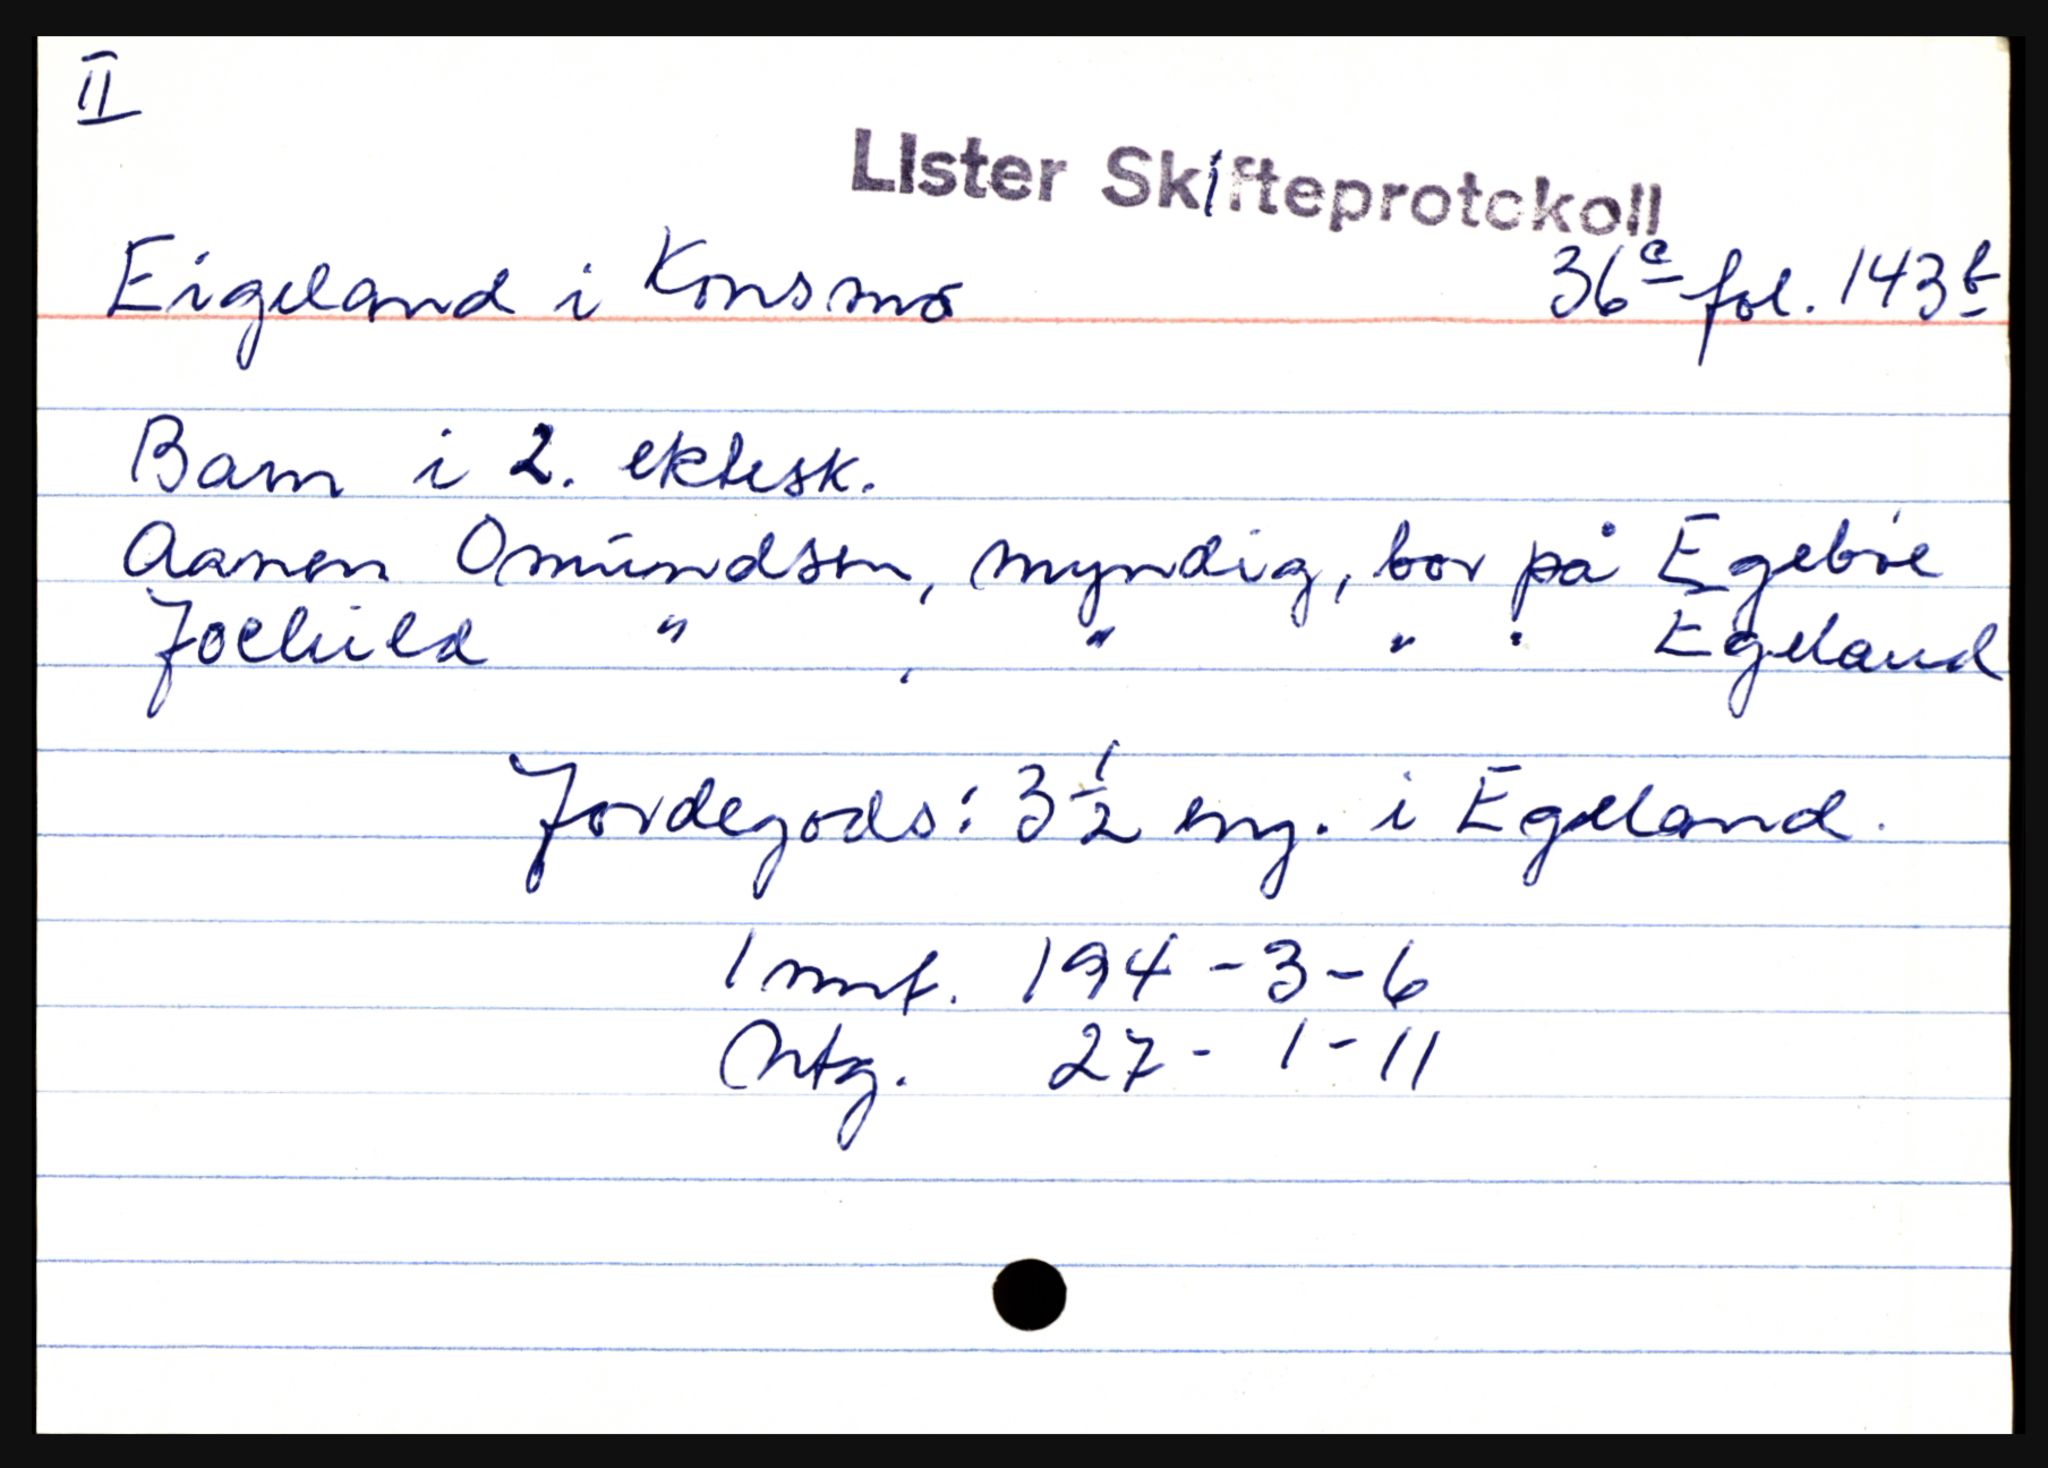 II
LIster Skifteprotokoll
Eigeland i Konsmo 36c fol. 143b
Barn i 2. ektesk.
Aanen Omündsen, myndig, bor på Egebøe
Joehild " , " " " Egeland
Jordegods: 3 1/2 eng. i Egeland.
Innt. 194-3-6
Utg. 27-1-11